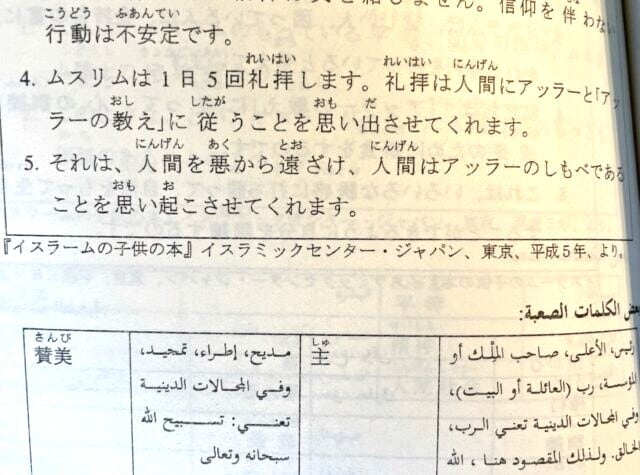 しません。信仰を伴わない
こうどう ふあんてい
行動は不安定です。
れいはい れいはい にんげん
4. ムスリムは1日5回礼拝します。礼拝は人間にアッラーと「アッ
おし したが おも だ
ラーの教え」に従うことを思い出させてくれます。
にんげん あく とお にんげん
5. それは、人間を悪から遠ざけ、人間はアッラーのしもべである
おも お
ことを思い起こさせてくれます。
『イスラームの子供の本』イスラミックセンター・ジャパン、東京、平成5年、より。
بعض الكلمات الصعبة:
さんび
賛美
مديح، إطراء، تمجيد،
وفي المجالات الدينية
تعني: تسبيح الله
سبحانه وتعالى
しゅ
主
رئيس، الأعلى، صاحب المِلْك أو
المؤسسة، رب (العائلة أو البيت)،
وفي المجالات الدينية تعني الرب،
الخالق. ولذلك المقصود هنا ، الله